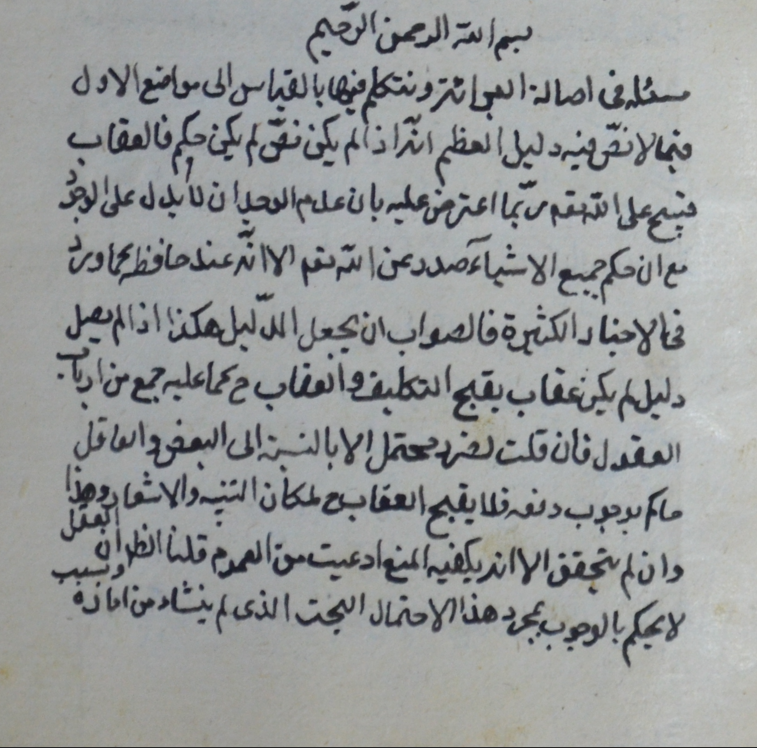 بسم الله الرحمن الرحيم
مسئلة فى اصالة البرائة ونتكلم فيها بالقياس الى مواضع الاول
فيما لا نصّ فيه دليل المعظم انّه اذا لم يكن نصّ لم يكن حكم فالعقاب
قبيح على الله تعم ربّما اعترض عليه بان عدم الوجدان لا يدل على الوجود
مع ان حكم جميع الاشياء صدر عن الله تعم الا انّه عند حافظه كما ورد
فى الاخبار الكثيرة فالصواب ان يجعل الدّليل هكذا اذا لم يصل
دليل لم يكن عقاب يقبح التكليف والعقاب ح كما عليه جمع من ارباب
العقول فان قلت الضرر محتمل الا بالنسبة الى البعض والعاقل
حاكم بوجوب دفعه فلا يقبح العقاب ح لمكان التنبيه والاشعار وهذا
وان لم يتحقق الا انه يكفيه المنع ادعيت من العموم قلنا الظ ان العقل
لا يحكم بالوجوب بمجرد هذا الاحتمال البحت الذى لم ينشاء من امارة وسبب